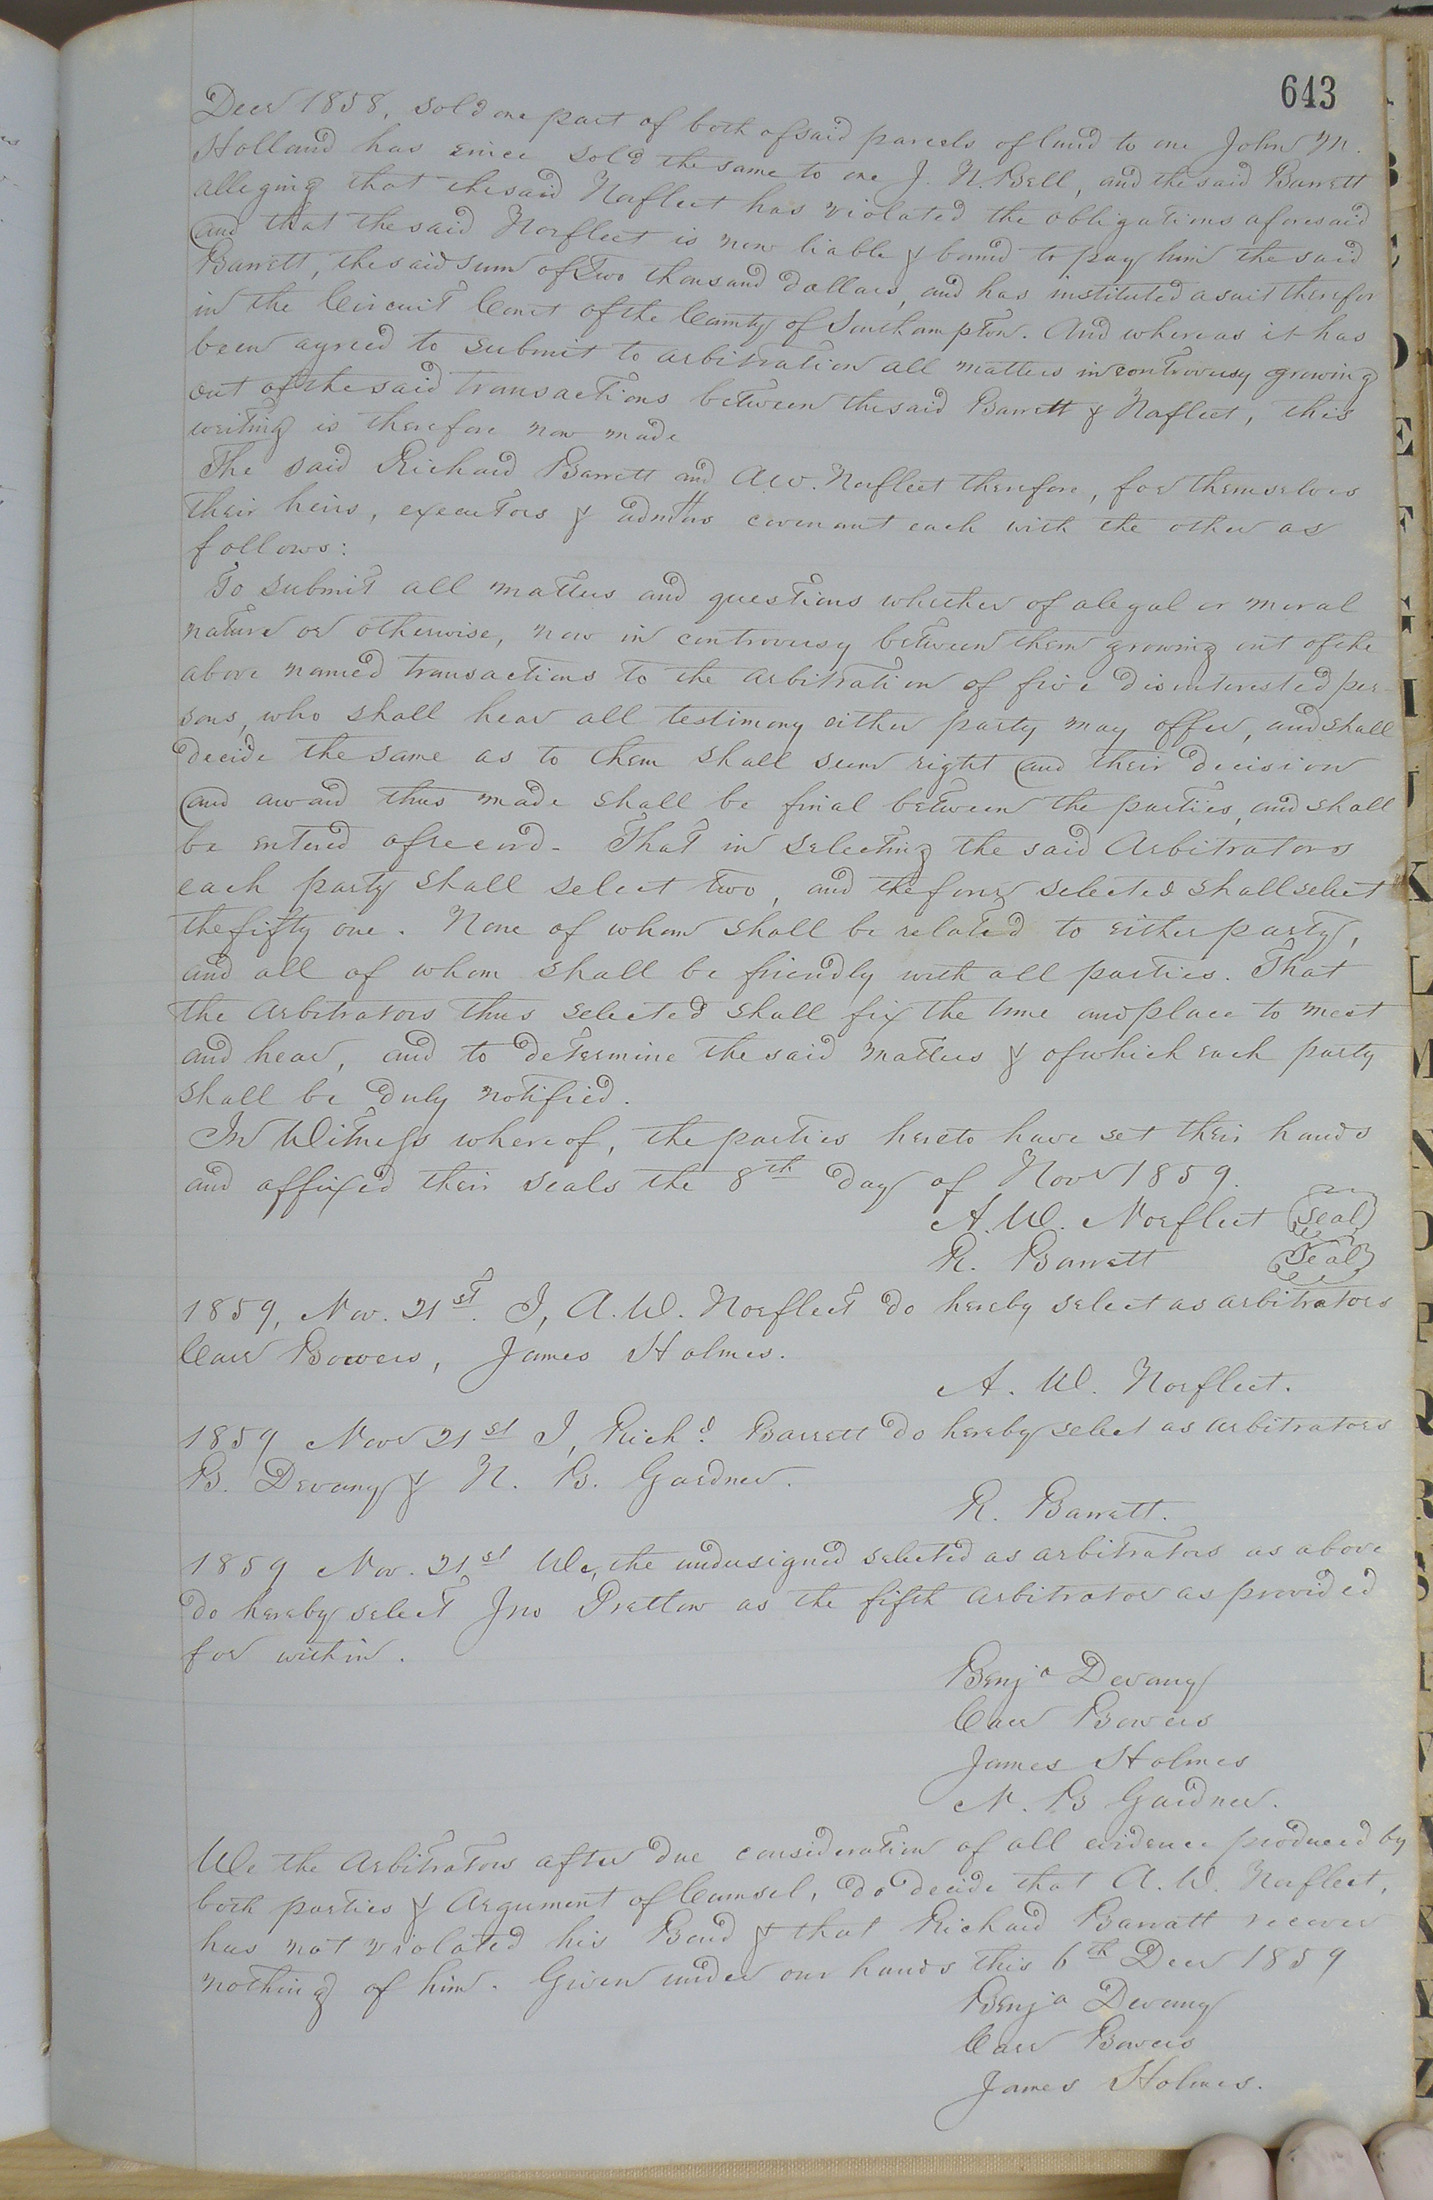 643
Decr 1858, sold one part of both of said parcels of land to one John M.
Holland has since sold the same to one J. N. Bell, and the said Barrett
alleging that the said Norfleet has violated the obligations aforesaid
and that the said Norfleet is now liable & bound to pay him the said
Barrett, the said sum of Two thousand dollars, and has instituted a suit therefor
in the Circuit Court of the County of Southampton. And whereas it has
been agreed to submit to arbitration all matters in controversy growing
out of the said transactions between the said Barrett & Norfleet, this
writing is therefore now made
The said Richard Barrett and A.W. Norfleet therefore, for themselves
their heirs, executors & admttors covenant each with the other as
follows:
To submit all matters and questions whether of a legal or moral
nature or otherwise, now in controversy between them growing out of the
above named transactions to the arbitration of five disinterested per-
sons, who shall hear all testimony either party may offer, and shall
decide the same as to them shall seem right and their decision
and award thus made shall be final between the parties, and shall
be entered of record - That in selecting the said Arbitrators
each party shall select two, and the four selected shall select
the fifty one. None of whom shall be related to either party,
and all of whom shall be friendly with all parties. That
the arbitrators thus selected shall fix the time and place to meet
and hear, and to determine the said matters & of which each party
shall be duly notified.
In Witness whereof, the parties hereto have set their hands
and affixed their seals the 8th day of Novr 1859.
A. W. Norfleet (Seal)
R. Barrett (Seal)
1859, Nov. 21st. I, A. W. Norfleet do hereby select as arbitrators
Carr Bowers, James Holmes.
A. W. Norfleet.
1859 Novr 21st I, Richd. Barrett do hereby select as arbitrators
B. Devany & N. B. Gardner.
R. Barrett.
1859 Nov. 21st We, the undersigned selected as arbitrators as above
do hereby select Jno Pretlow as the fifth arbitrator as provided
for within.
Benja Devany
Carr Bowers
James Holmes
N. B Gardner.
We the Arbitrators after due consideration of all evidence produced by
both parties & Argument of Counsel, do decide that A. W. Norfleet,
has not violated his Bond & that Richard Barratt recover
nothing of him. Given under our hands this 6th Decr 1859
Benja Devany
Carr Bowers
James Holmes.